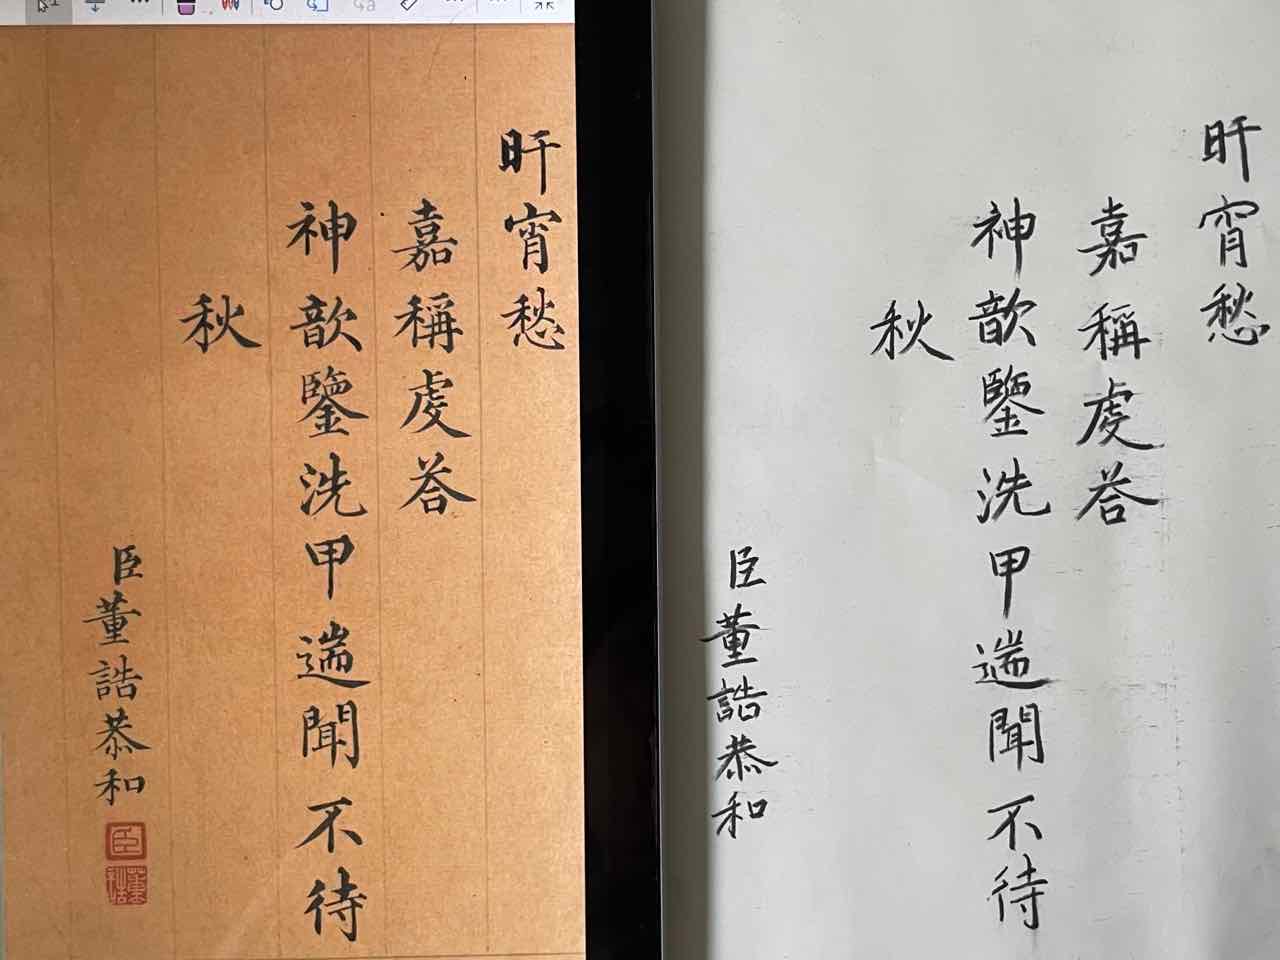 旰宵愁
嘉稱虔荅
神歆鑒洗甲遄聞不待
秋
臣董誥恭和
臣
董誥
旰宵愁
嘉稱虔荅
神歆鑒洗甲遄聞不待
秋
臣董誥恭和